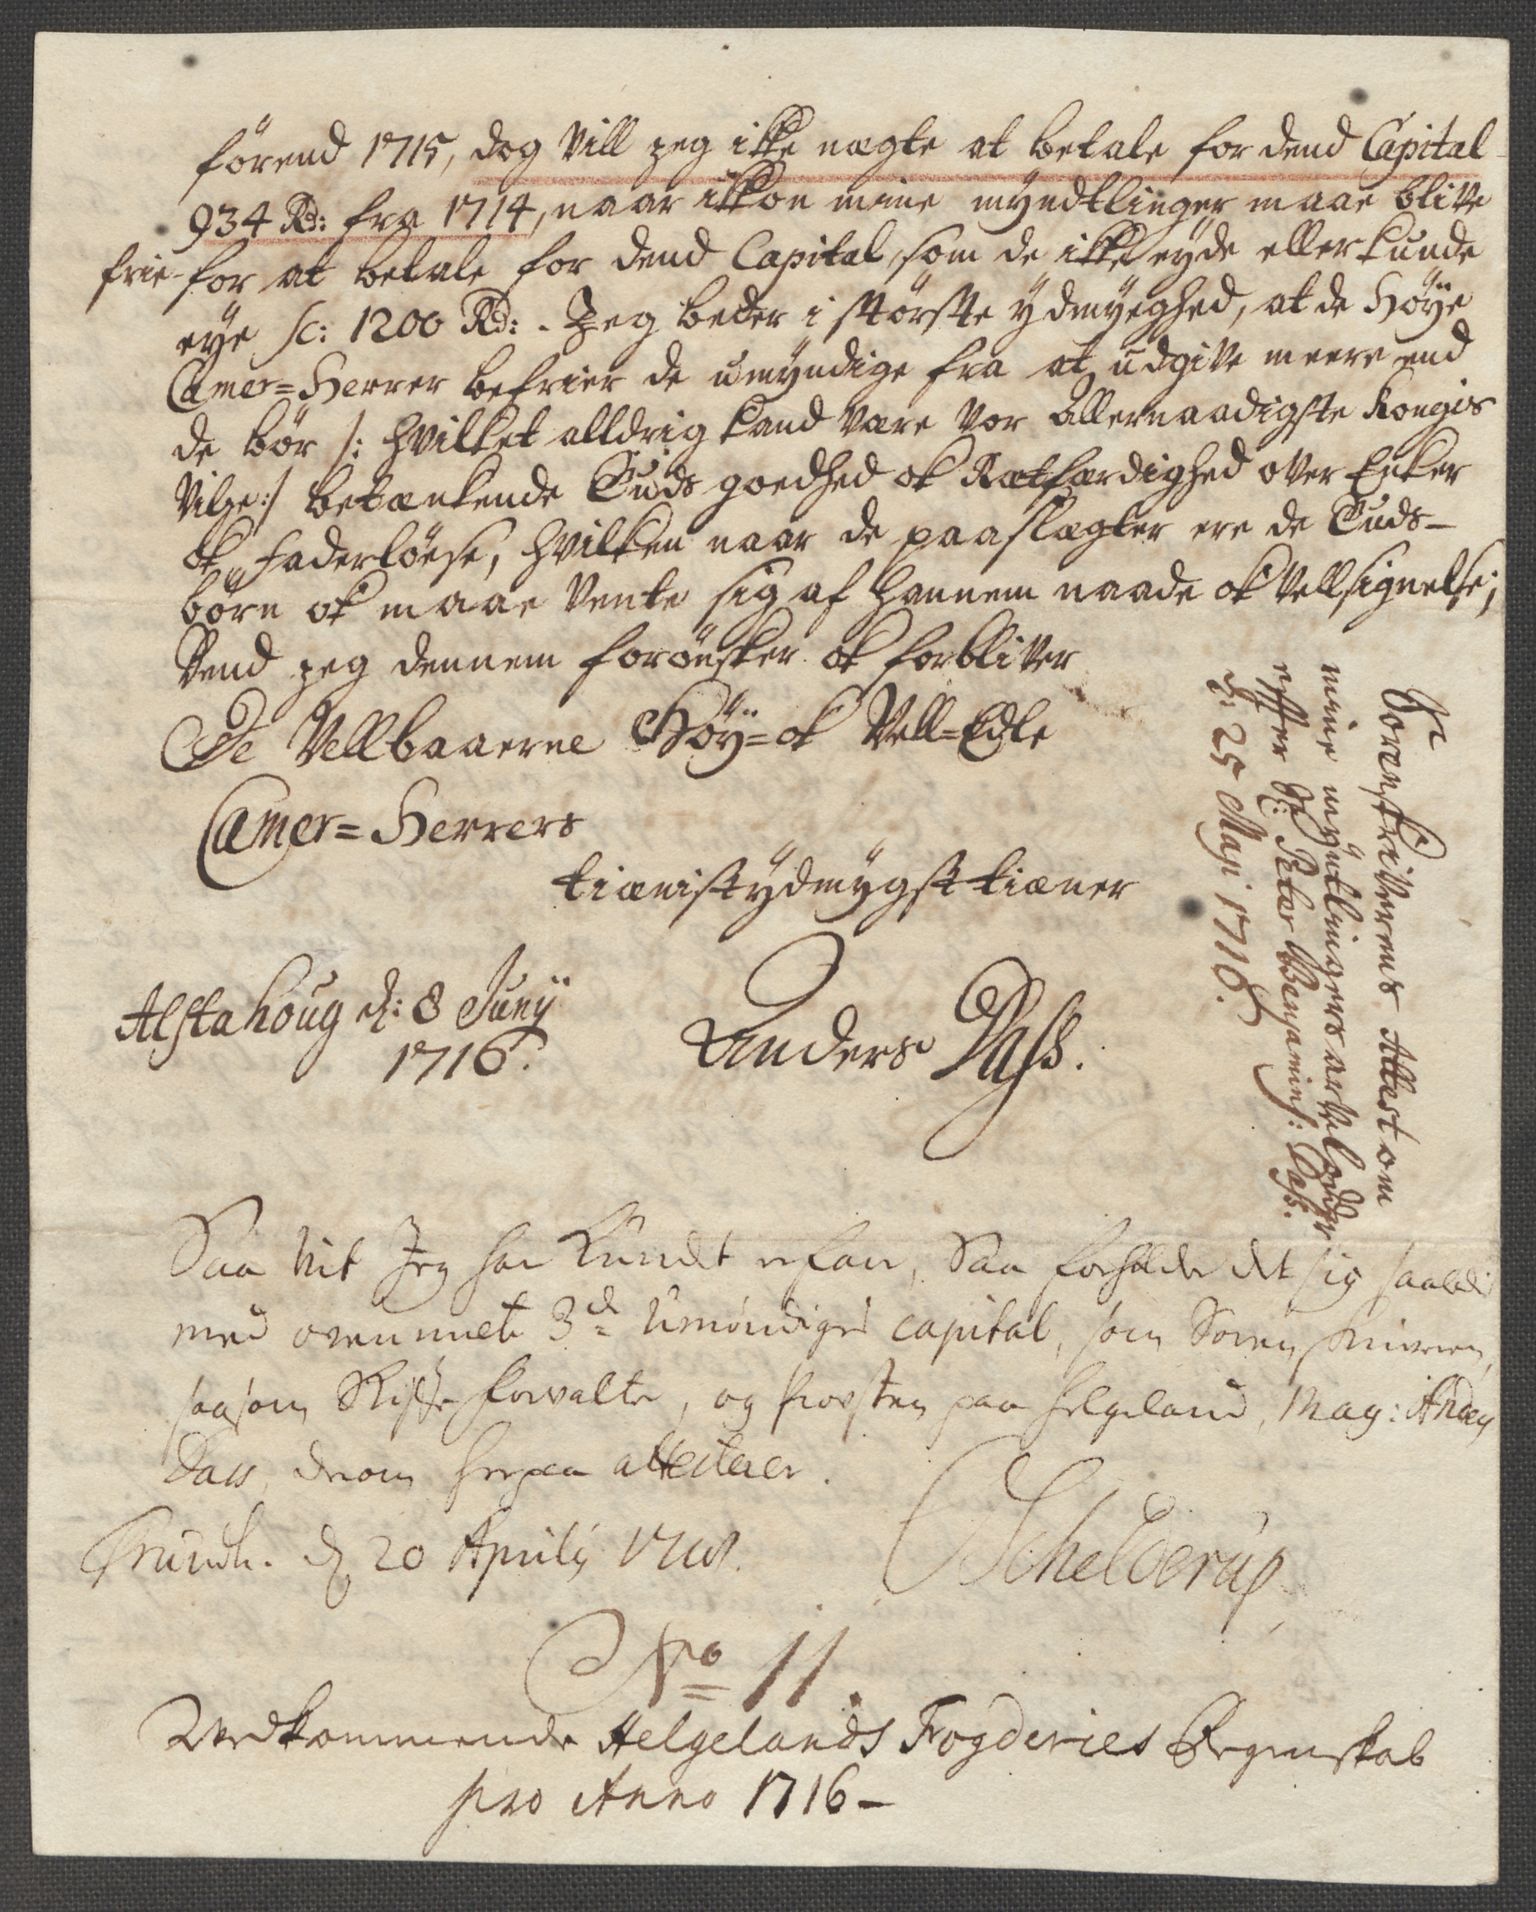 förend 1715, dog vill jeg ikke nægte at betale for dend Capital
934 Rd: fra 1714, naar ikkon mine myndtlinger maae blive
frie for at betale for dend Capital, som de ikke eyde eller kunde
eye sc: 1200 Rd: . Jeg beder i störste ydmyghed, at de Höye
Camer=Herrer befrier de umyndige fra at udgive meere end
de bör /: hvilket alldrig kand være vor allernaadigste Kongis
vilge :/ betænkende Guds goedhed ok Rætfærdighed over Enker
ok Faderlöese, hvilken naar de paaslægter ere de Guds-
börn ok maae vente sig af hannem naade ok vellsignelse;
Dend jeg dennem forönsker ok forbliver
De Vellbaaerne Höy= ok Vell=Edle
Camer=Herrers
tienistydmygst tiæner
Alstahoug d: 8 Juny
1716.
Anders Dass.
Sorenskriverens Attest om
mine myntlingers arvelodder
effter Hr: Peter Benjamins: Dass.
d: 25 Maji 1716.
Saa vit Jeg har kundt erfare, Saa forholder det sig saaledis
med ovenmelte 3de Umöndiges capital, som Soren skriveren,
saasom Skifte forvalter, og Provsten paa Helgeland, Mag: Anders
Dass, derom herpaa attesterer.
Trundh. d 20 Aprily 1718.
Schelderup
No 11.
Vedkommende Helgelands Fogderies Regenskab
pro Anno 1716-